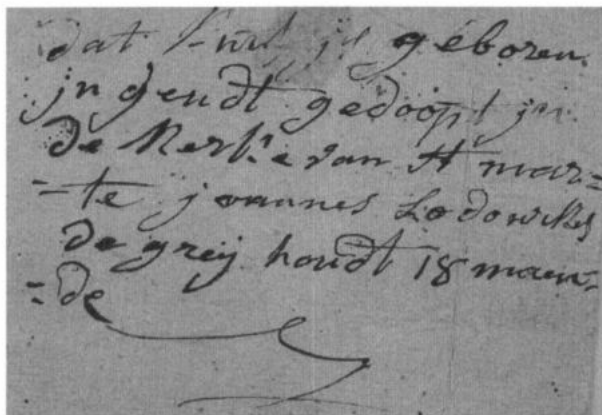 dat kint is geboren
jn gendt gedoopt jn
de Kerke van St mar=
=te joannes Lodowikes
de greij houdt 18 maen=
=de